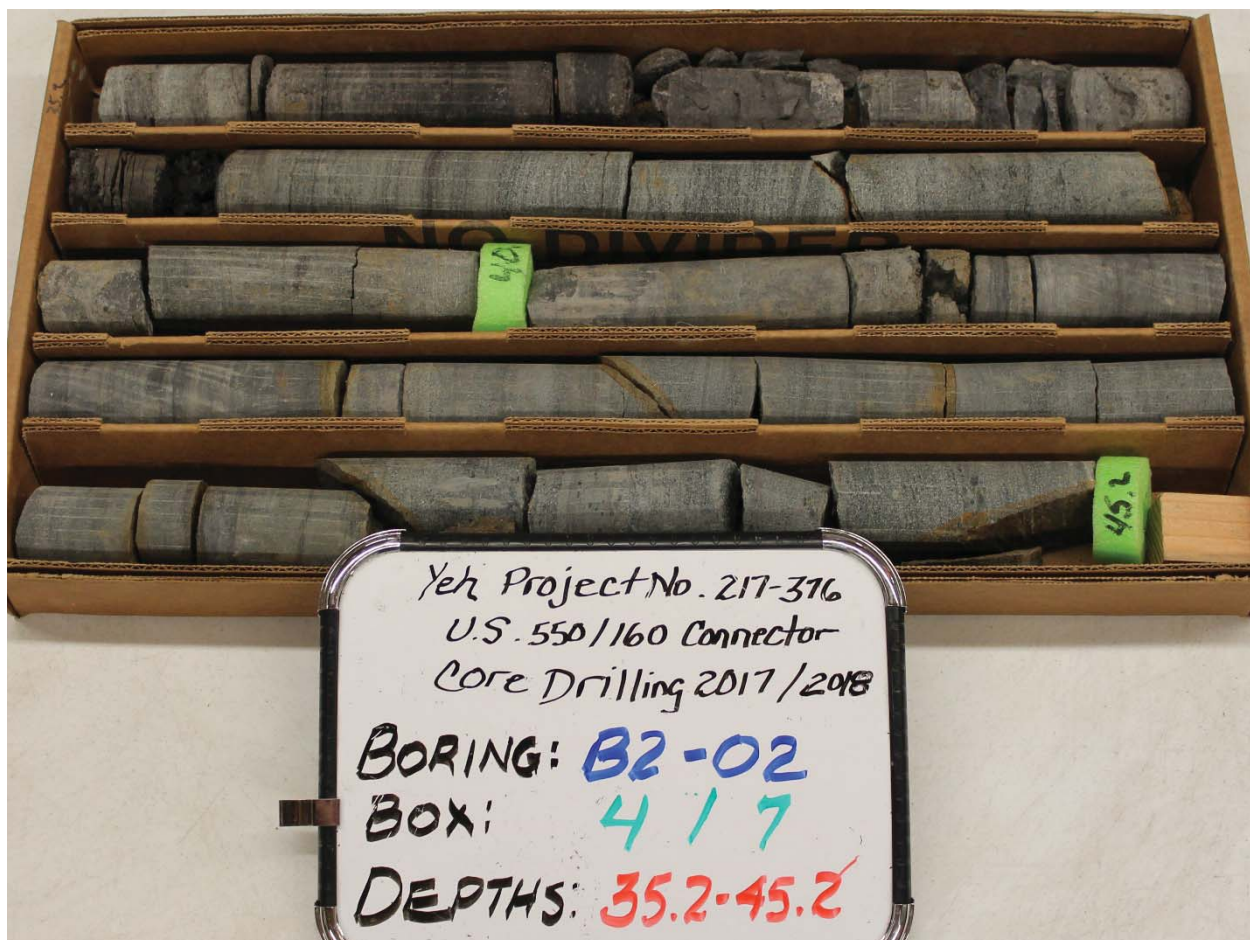 35.2
NO DIVIDER
40
45.2
Yeh Project No. 217-376
U.S. 550/160 Connector
Core Drilling 2017/2018
BORING: B2-02
BOX: 4 / 7
DEPTHS: 35.2-45.2